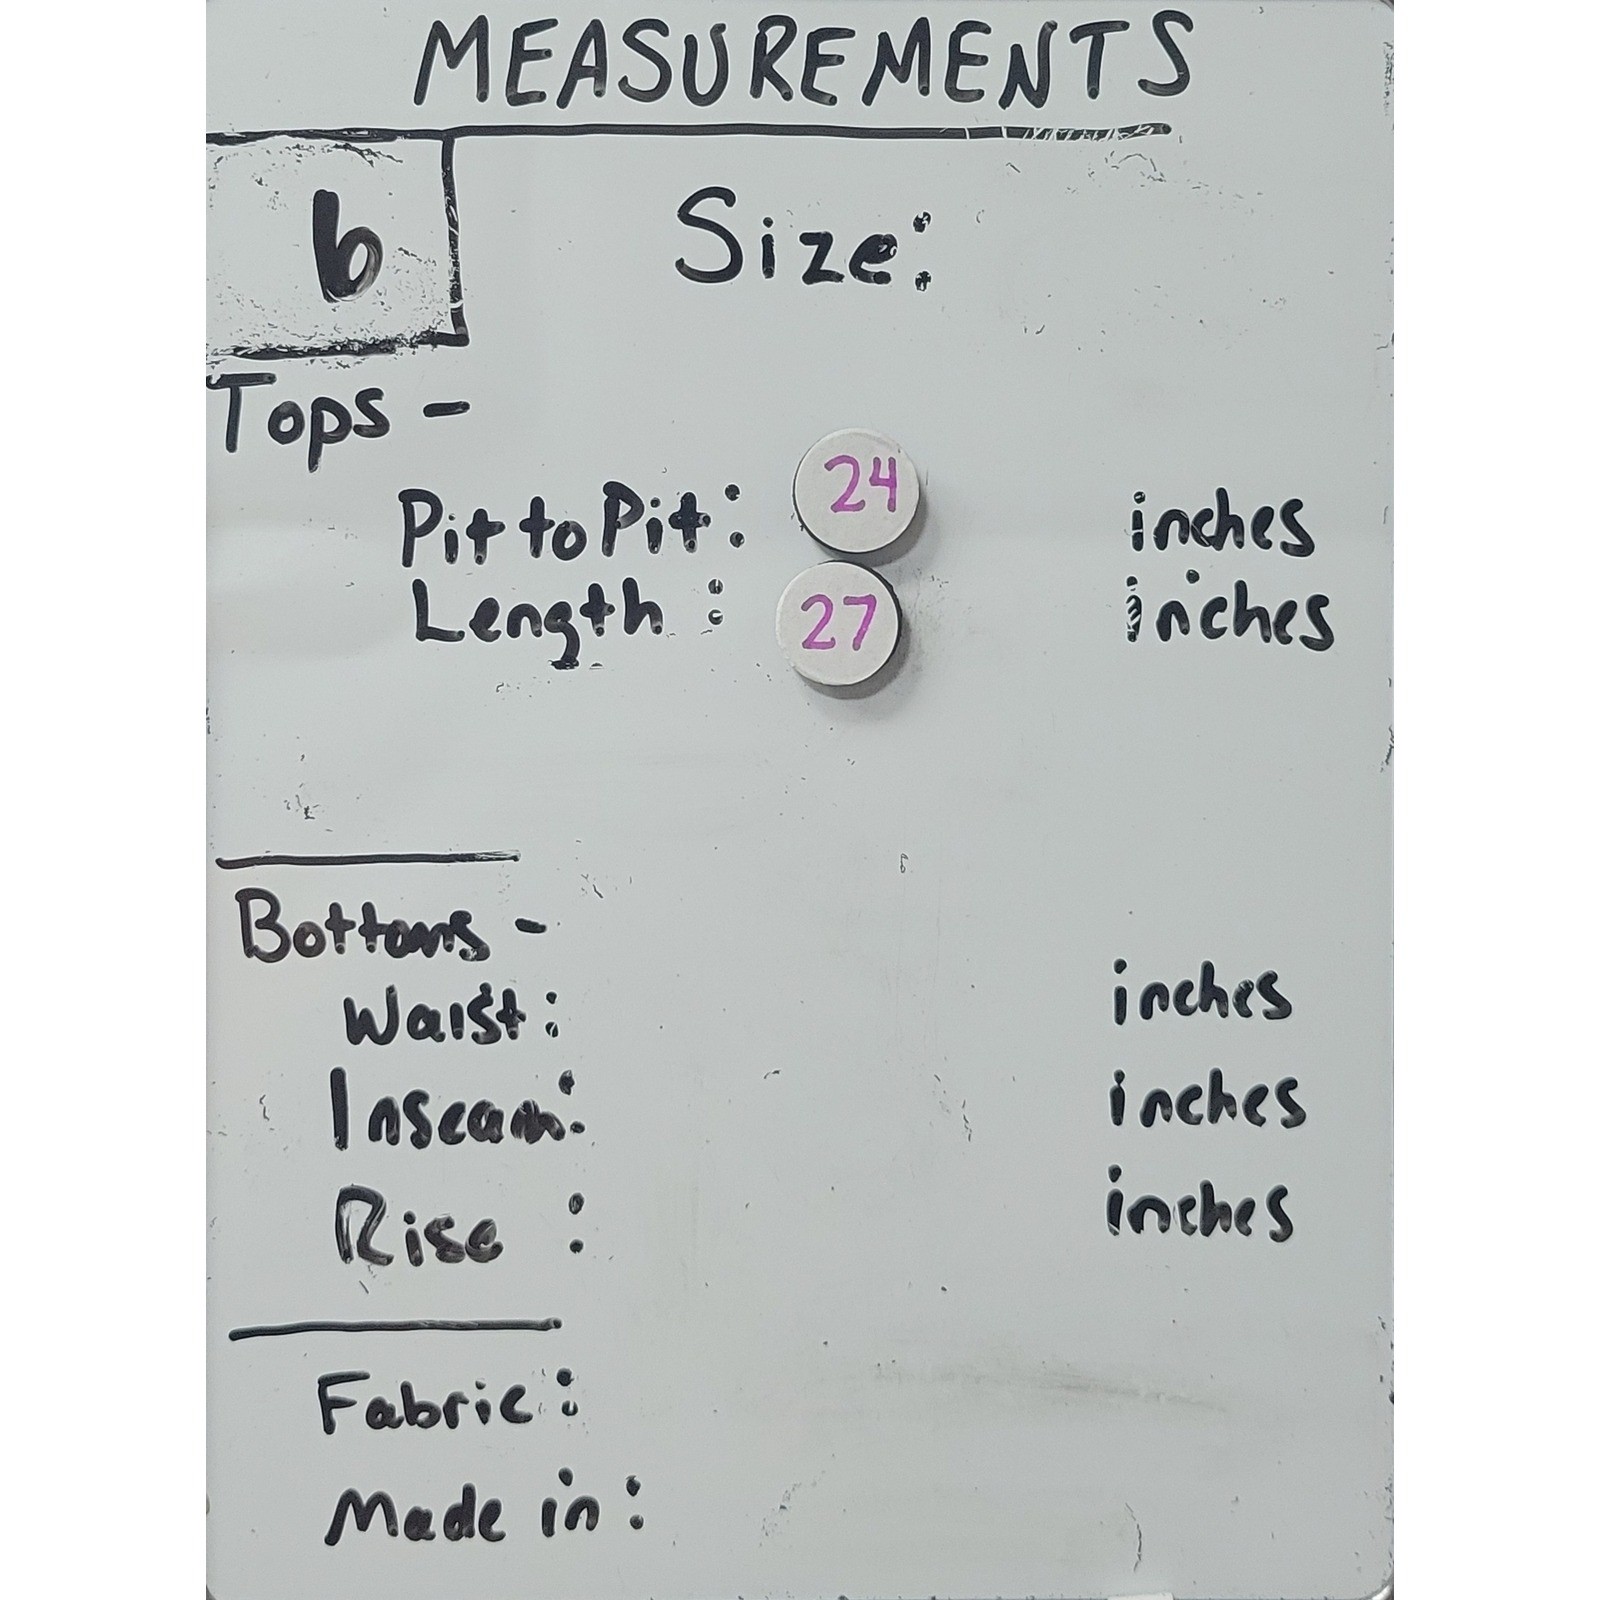 MEASUREMENTS
b
Size:
Tops -
Pit to Pit: 24 inches
Length: 27 inches
Bottoms -
Waist: inches
Inseam: inches
Rise : inches
Fabric:
Made in: